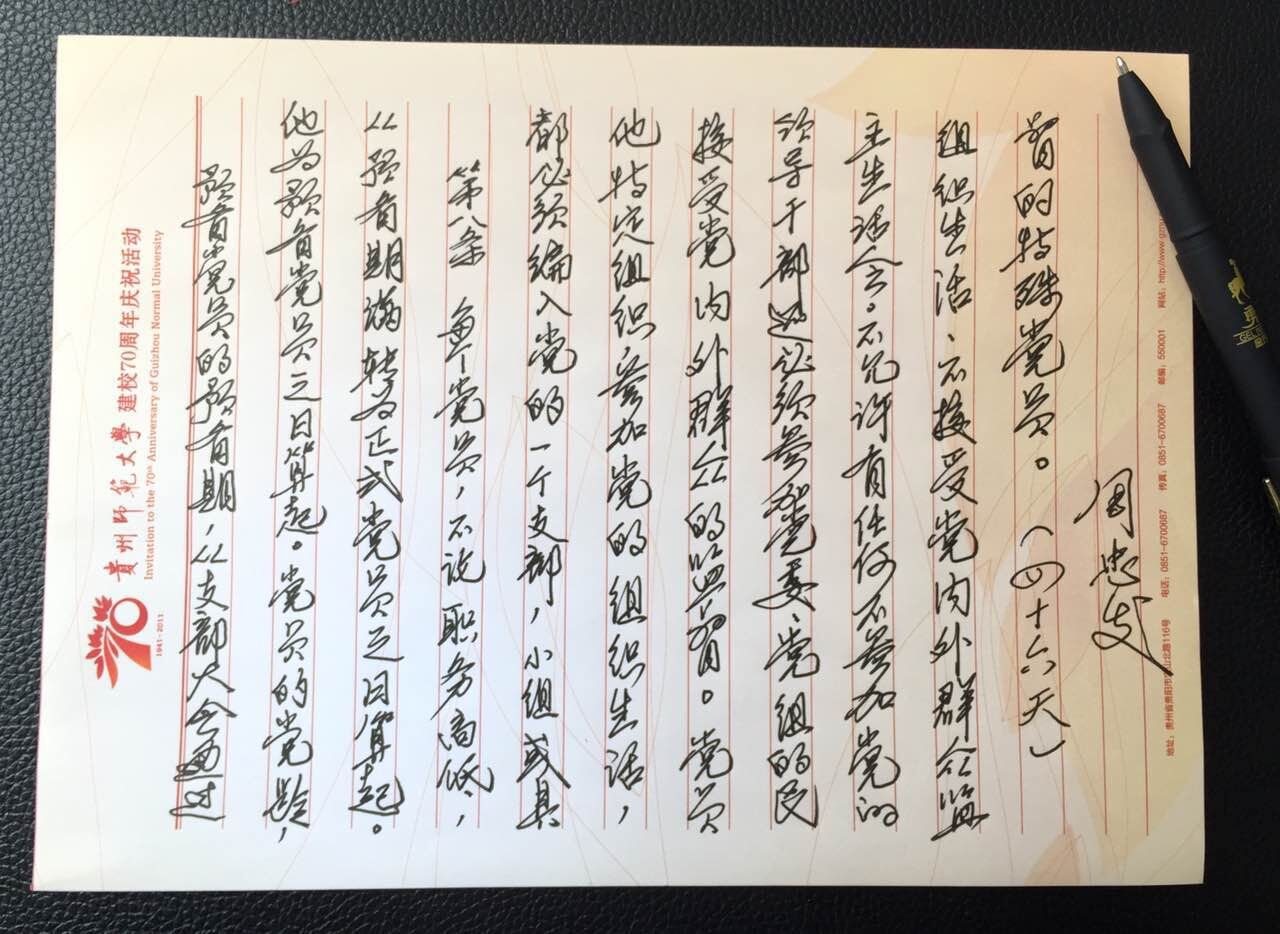 貴州師範大學 建校70周年庆祝活动
Invitation to the 70th Anniversary of Guizhou Normal University
70
1941-2011
预备党员的预备期,从支部大会通过
他为预备党员之日算起。党员的党龄,
从预备期满转为正式党员之日算起。
第八条 每个党员,不论职务高低,
都必须编入党的一个支部,小组或其
他特定组织,参加党的组织生活,
接受党内外群众的监督。党员
领导干部还必须参加党委、党组的民
主生活会。不允许有任何不参加党的
组织生活、不接受党内外群众监
督的特殊党员。(四十六天)
周忠
地址:贵州省贵阳市宝山北路116号 电话:0851-6700687 传真:0851-6700687 邮编:550001 网站:http://www.gzn